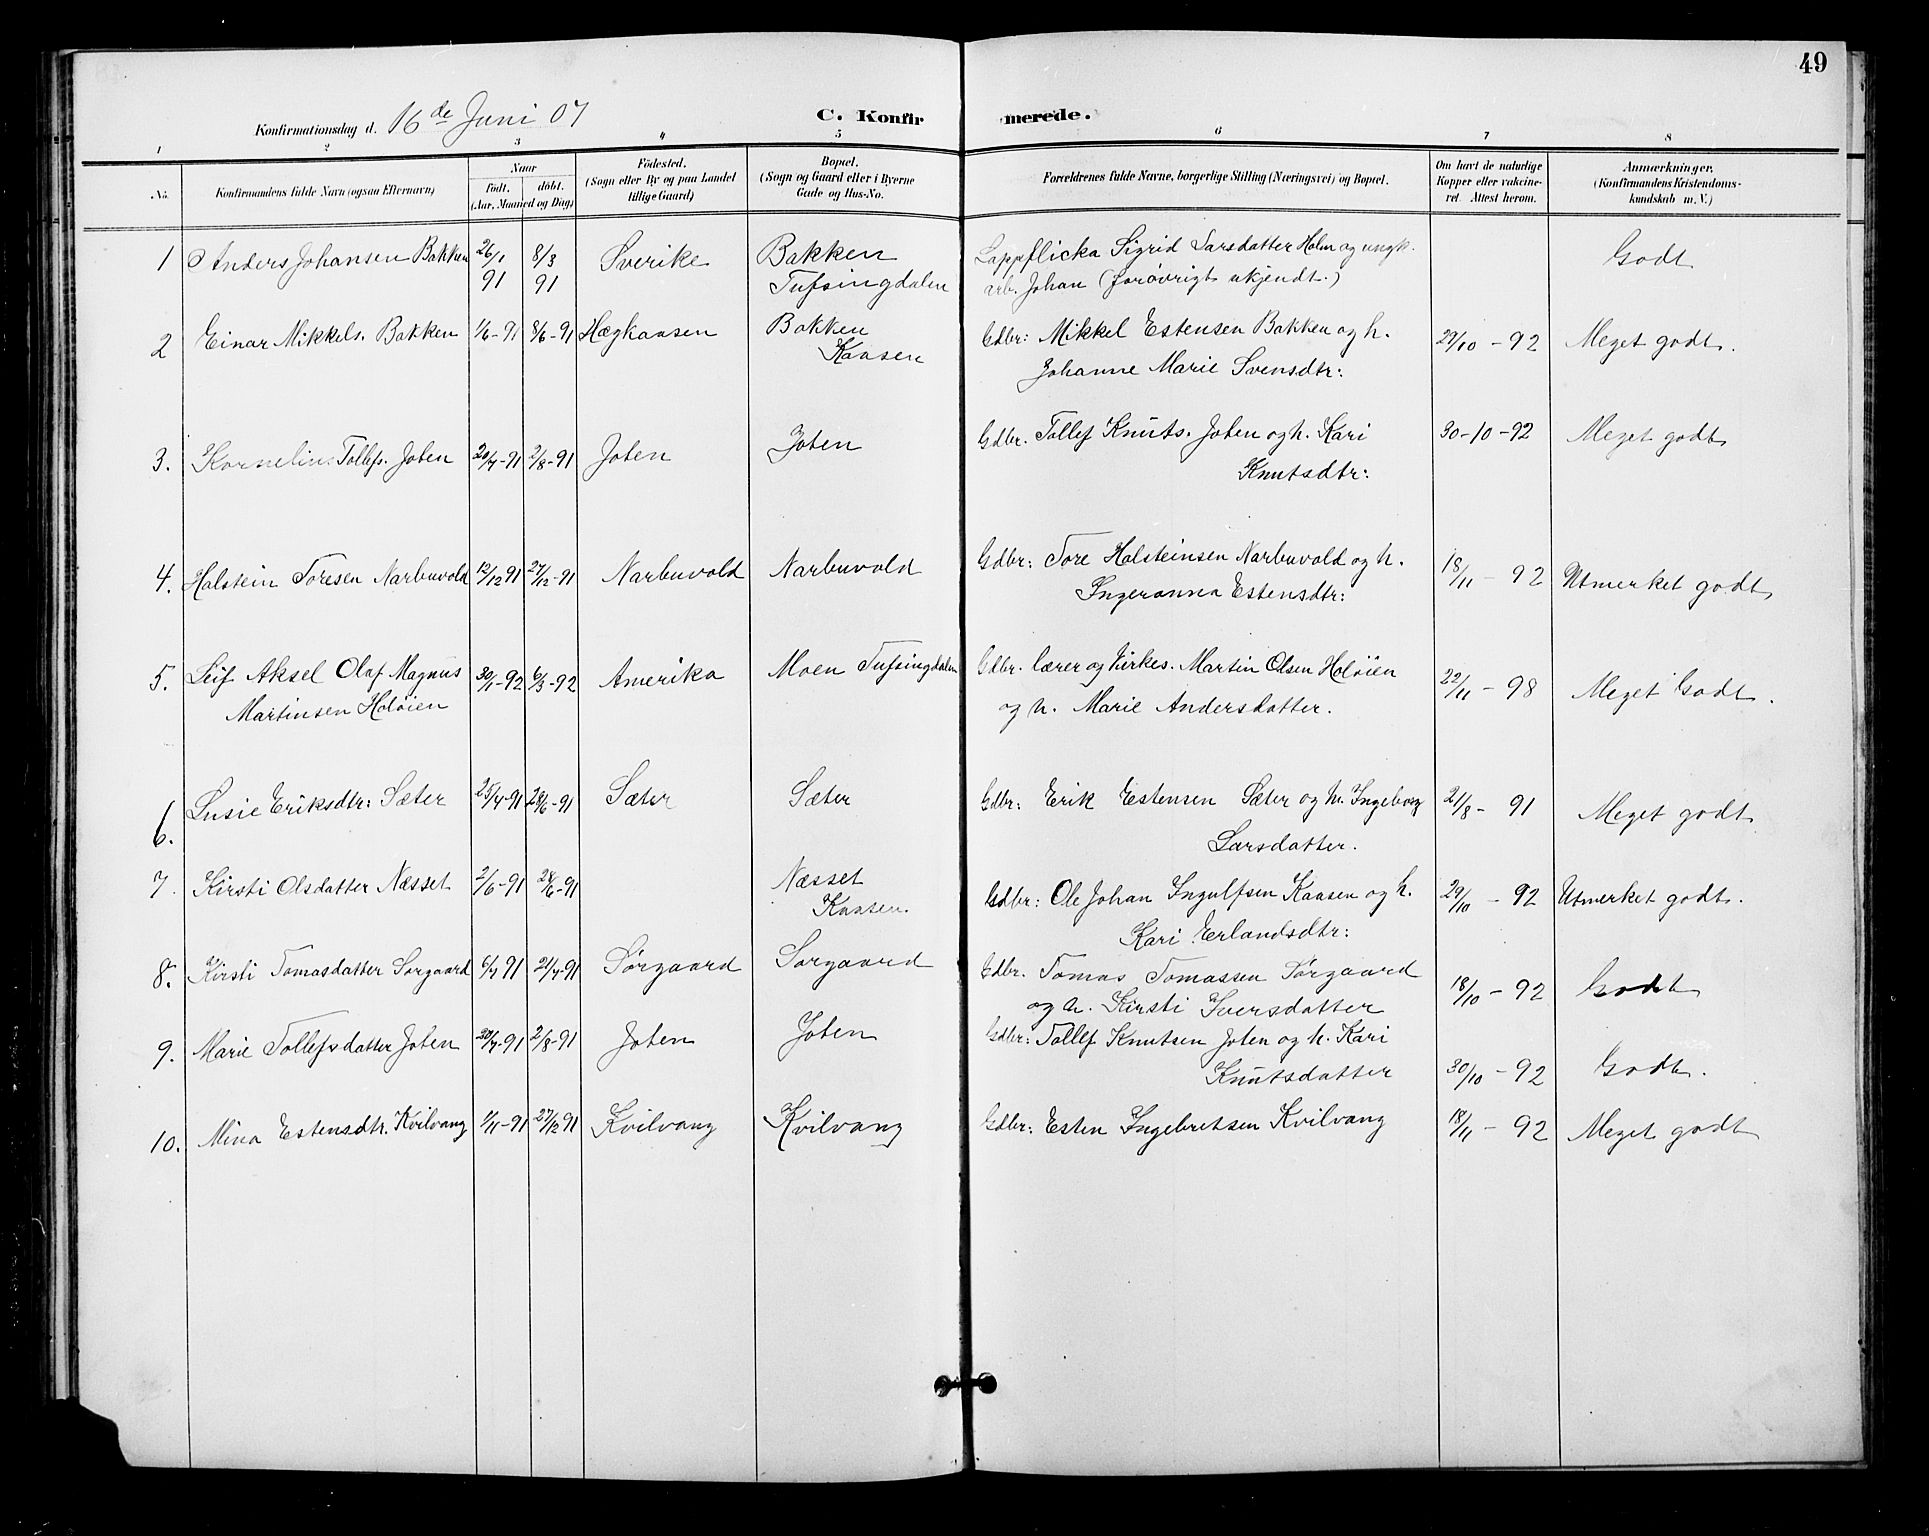 49
Konfirmationsdag d. 16de Juni 07
C. Konfirmerede.
1 2 3 4 5 6 7 8
No. Konfirmandens fulde Navn (ogsaa Efternavn) Naar født. døbt. (Aar, Maaned og Dag) Fødested. (Sogn eller By og paa Landet tillige Gaard) Bopæl. (Sogn og Gaard eller i Byerne Gade og Hus-No. Forældrenes fulde Navne, borgerlige Stilling (Næringsvei) og Bopæl. Om havt de naturlige Kopper eller vakcineret Attest herom. Anmerkninger. (Konfirmandens Kristendomskundskab m. V.)
1 Anders Johansen Bakken 26/1 91 8/3 91 Sverike Bakken Tufsingdalen Lappflicka Sigrid Larsdatter Holm og ungk. Godt
arb. Johan (forøvrigt ukjendt.)
2 Einar Mikkels. Bakken 1/6-91 8/6-91 Hægkaasen Bakken Kaasen Gdbr: Mikkel Estensen Bakken og h. 29/10-92 Meget godt.
Johanne Marie Svensdtr:
3. Kornelius Tollefs. Joten 20/7-91 2/8-91 Joten Joten Gdbr. Tollef Knuts. Joten og h. Kari 30-10-92 Meget godt
Knutsdtr:
4. Halstein Toresen Narbuvold 12/12 91 27/12-91 Narbuvold Narbuvold Gdbr: Tore Halsteinsen Narbuvold og h. 18/11-92 Utmerket godt
Ingeranna Estensdtr:
5. Leif Aksel Olaf Magnus 30/1-92 6/3-92 Amerika Moen Tufsingdalen Gdbr. lærer og kirkes. Martin Olsen Holøien 22/11-98 Meget Godt.
Martinsen Holøien og h. Marie Andersdatter.
6. Lusie Eriksdtr: Sæter 25/4-91 28/6-91 Sæter Sæter Gdbr: Erik Estensen Sæter og h. Ingeborg 21/8-91 Meget godt
Larsdatter.
7. Kirsti Olsdatter Næsset 2/6-91 28/6-91 Næsset Kaasen. Gdbr: Ole Johan Ingulfsen Kaasen og h. 29/10-92 Utmerket godt.
Kari Erlandsdtr:
8. Kirsti Tomasdatter Sørgaard 6/7 91 21/7-91 Sørgaard Sørgaard Gdbr. Tomas Tomassen Sørgaard 18/10-92 Godt
og h. Kirsti Iversdatter
9. Marie Tollefsdatter Joten 20/7-91 2/8-91 Joten Joten Gdbr: Tollef Knutsen Joten og h. Kari 30/10-92 Godt.
Knutsdatter
10. Mina Estensdtr. Kvilvang 1/11-91 27/12 91 Kvilvang Kvilvang Gdbr: Esten Ingebretsen Kvilvang 18/11-92 Meget godt